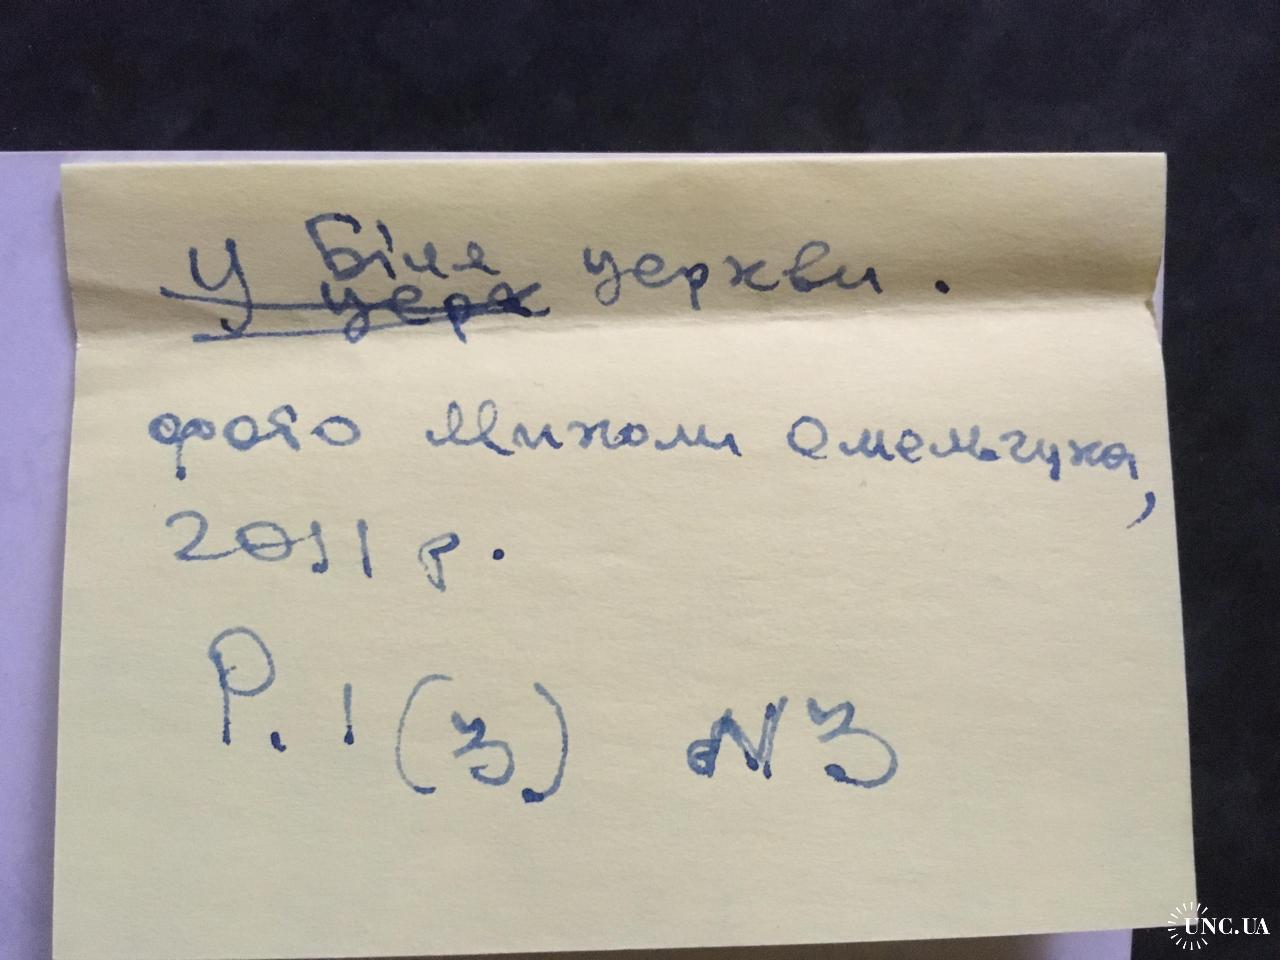 У Біля церкви.
церк
фото Миколи Омельчука,
2011 р.
Р. 1 (3) N 3
UNC.UA